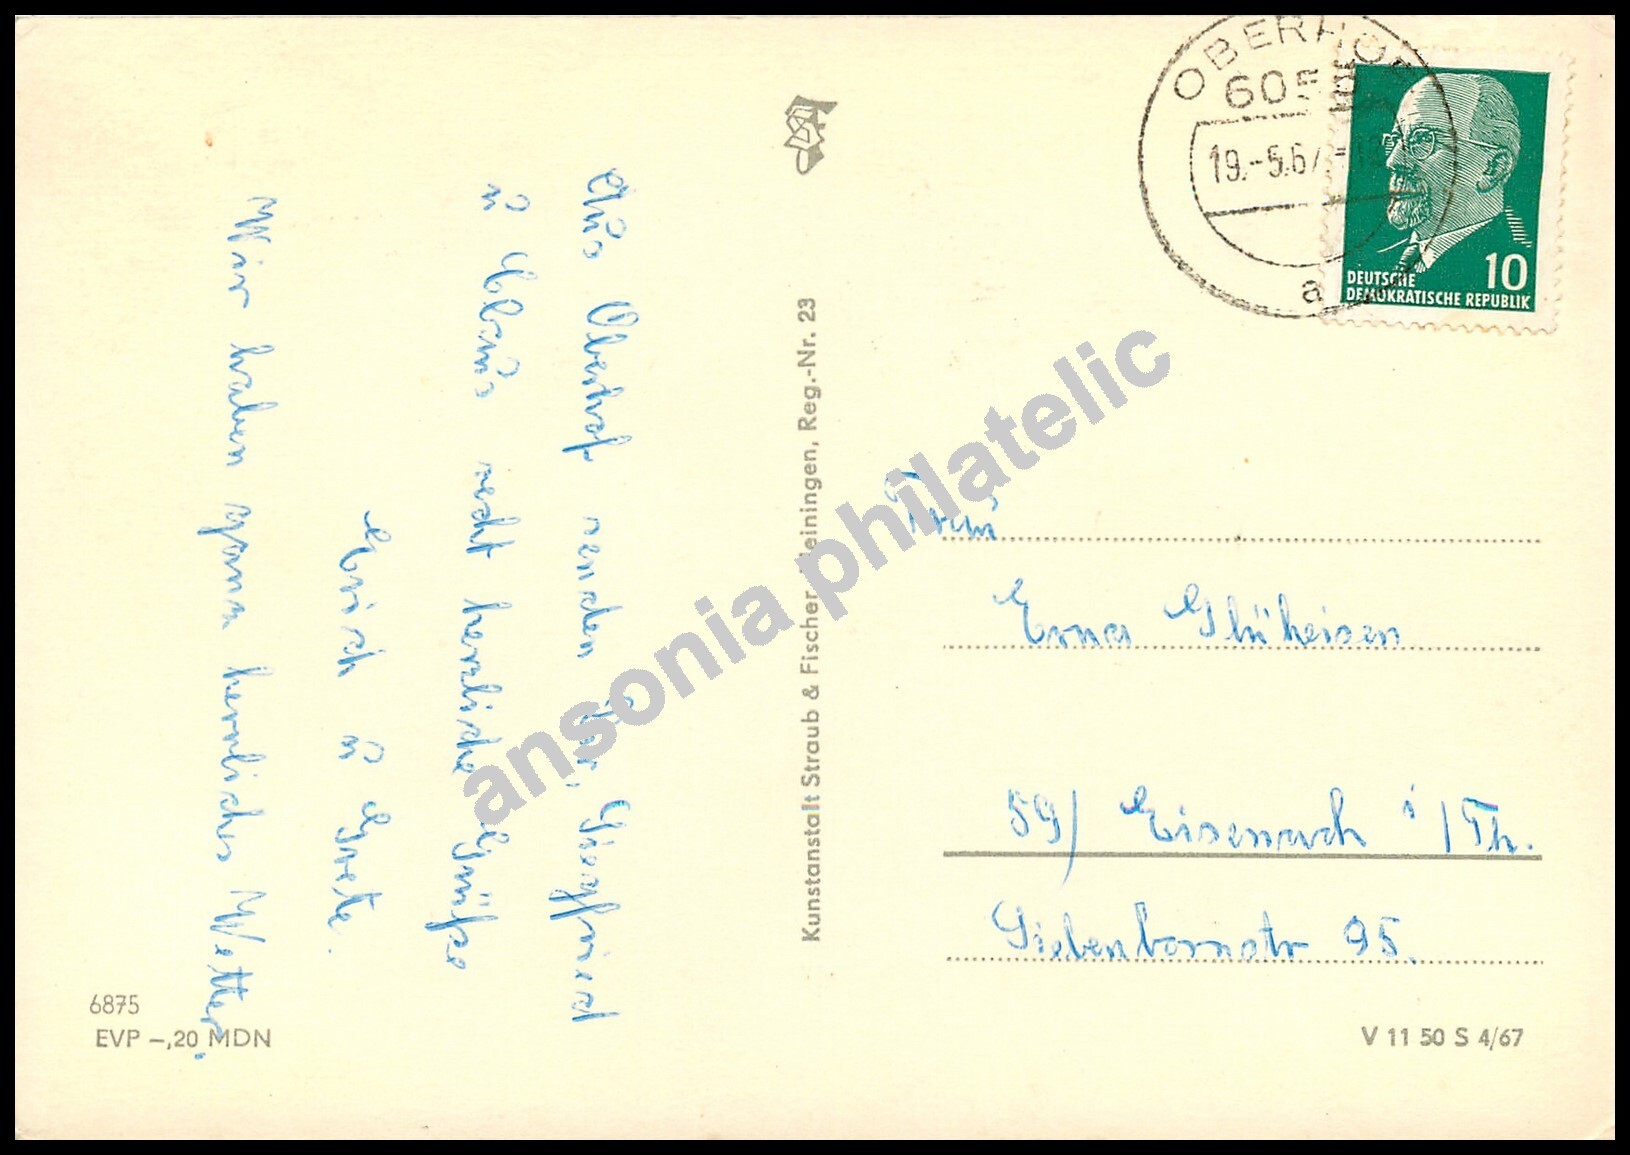 Aus Oberhof senden Dir, Siegfried
u Klaus recht herzliche Grüße
Erich u Grete.
Wir haben ganz herrliches Wetter.
6875
EVP –,20 MDN
Kunstanstalt Straub & Fischer, Meiningen, Reg.-Nr. 23
OBERHOF
19.-5.67
a
10
DEUTSCHE
DEMOKRATISCHE REPUBLIK
Frau
Erna Glüheisen
59/ Eisenach i/Th.
Siebenbornstr 95.
V 11 50 S 4/67
ansonia philatelic